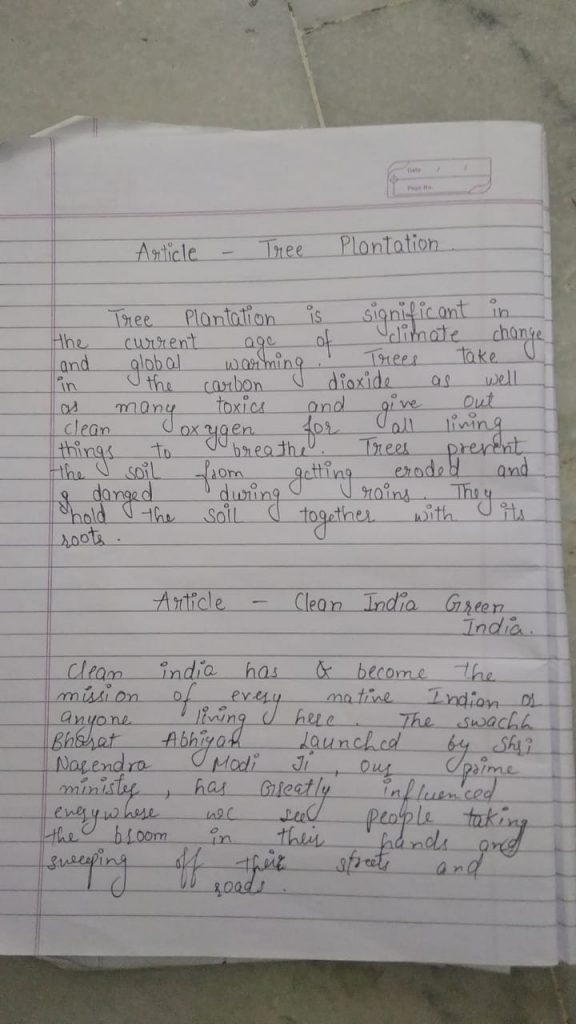 Date / /
Page No.
Article - Tree Plantation.
Tree Plantation is significant in
the current age of climate change
and global warming. Trees take
in the carbon dioxide as well
as many toxics and give out
clean oxygen for all living
things to breathe. Trees prevent
the soil from getting eroded and
danged during rains. They
hold the soil together with its
roots.
Article - Clean India Green
India.
Clean india has become the
mission of every native Indian or
anyone living here. The swachh
Bharat Abhiyan Launched by Shri
Narendra Modi Ji, our prime
minister, has Greatly influenced
everywhere we see people taking
the broom in their hands and
sweeping off their streets and
roads.